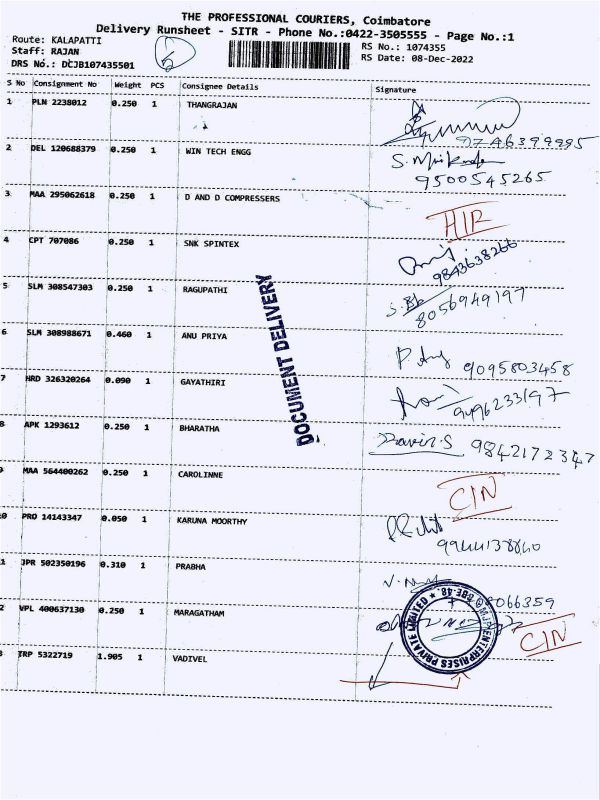 THE PROFESSIONAL COURIERS, Coimbatore
Delivery Runsheet - SITR - Phone No.:0422-3505555 - Page No.:1
Route: KALAPATTI
Staff: RAJAN
DRS No.: DCJB107435501
RS No.: 1074355
RS Date: 08-Dec-2022
S No Consignment No Weight PCS Consignee Details Signature
1 PLN 2238012 0.250 1 THANGRAJAN
9746399995
2 DEL 120688379 0.250 1 WIN TECH ENGG
9500545265
3 MAA 295062618 0.250 1 D AND D COMPRESSERS
4 CPT 707086 0.250 1 SNK SPINTEX
9843638266
5 SLM 308547303 0.250 1 RAGUPATHI
8056949197
6 SLM 308988671 0.460 1 ANU PRIYA
9095803458
7 HRD 326320264 0.090 1 GAYATHIRI
9496233197
8 APK 1293612 0.250 1 BHARATHA
9842172347
MAA 564400262 0.250 1 CAROLINNE
CIN
0 PRO 14143347 0.050 1 KARUNA MOORTHY
9944138840
1 JPR 502350196 0.310 1 PRABHA
066359
2 VPL 400637130 0.250 1 MARAGATHAM
CIN
TRP 5322719 1.905 1 VADIVEL
DOCUMENT DELIVERY
ENTERPRISES PRIVATE LIMITED